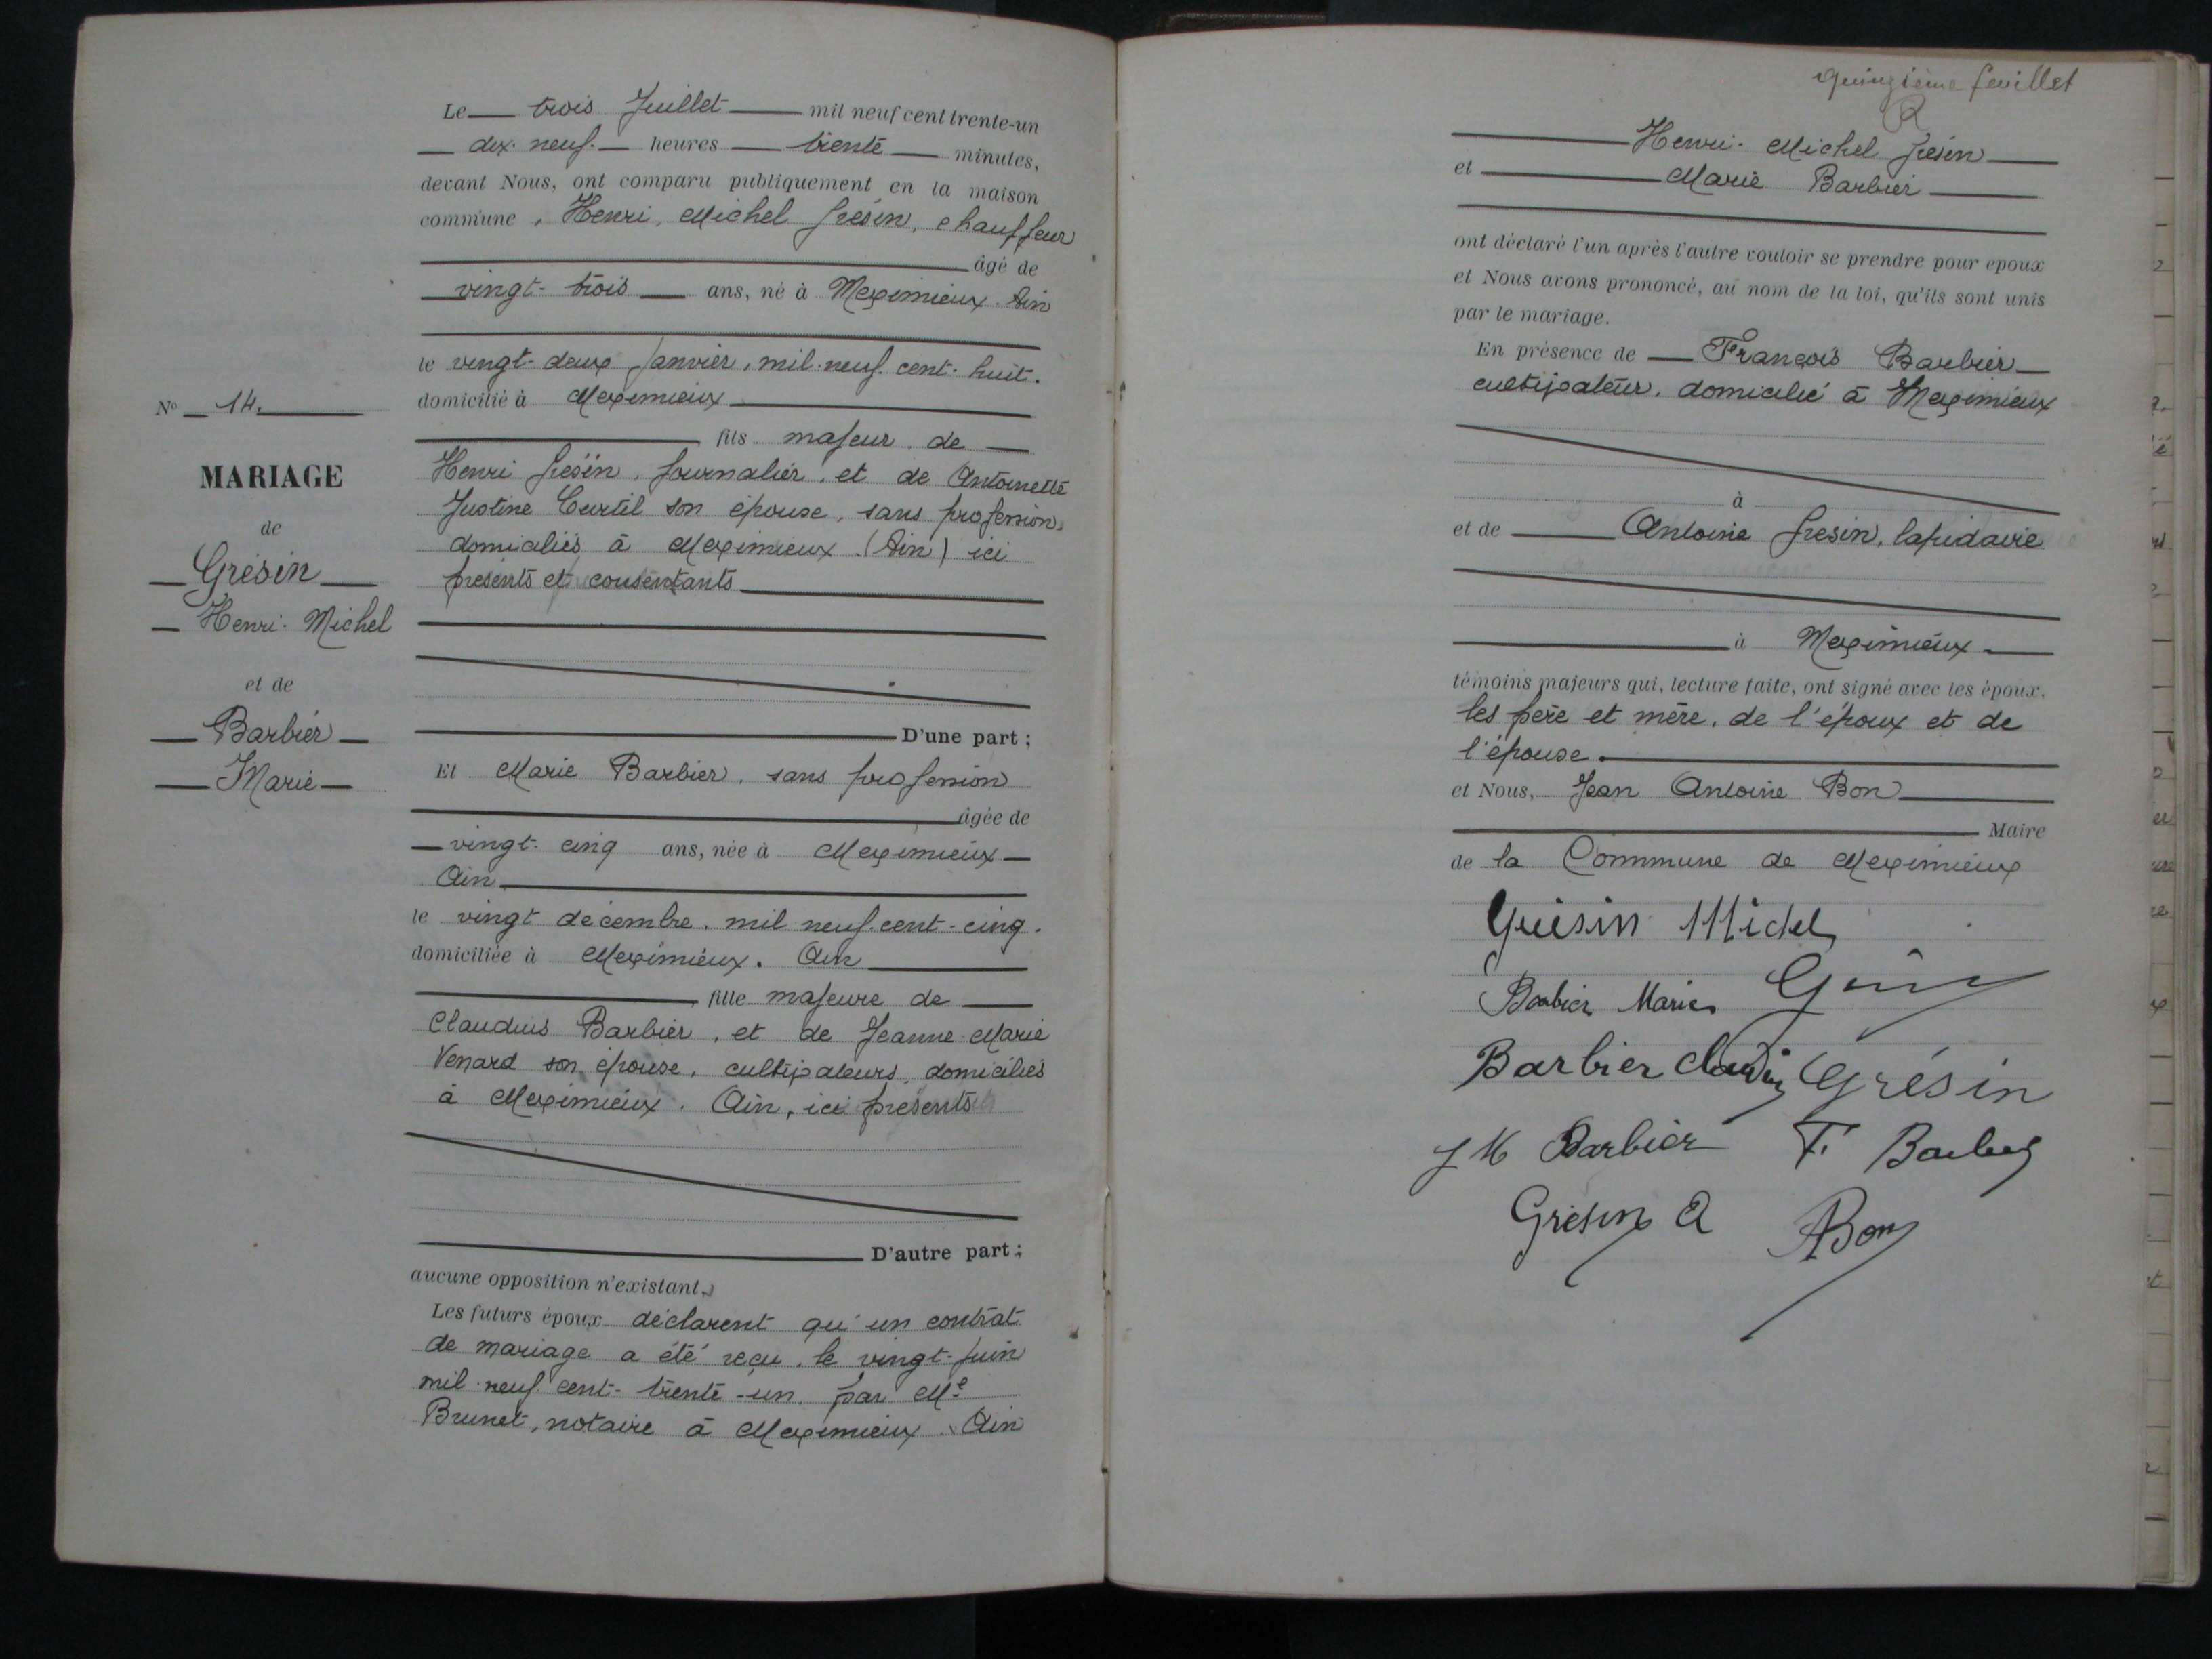 Le trois Juillet mil neuf cent trente-un
dix-neuf heures trente minutes,
devant Nous, ont comparu publiquement en la maison
commune, Henri, Michel Grésin, chauffeur
âgé de
vingt-trois ans, né à Meximieux. Ain
le vingt-deux Janvier, mil-neuf cent-huit.
domicilié à Meximieux
fils majeur de
Henri Grésin, journalier, et de Antoinette
Justine Curtil son épouse, sans profession,
domiciliés à Meximieux (Ain) ici
présents et consentants
D'une part;
Et Marie Barbier, sans profession
âgée de
vingt-cinq ans, née à Meximieux
Ain
le vingt décembre, mil neuf-cent-cinq.
domiciliée à Meximieux. Ain
fille majeure de
Claudius Barbier, et de Jeanne-Marie
Venard son épouse, cultivateurs, domiciliés
à Meximieux. Ain, ici présents
D'autre part;
aucune opposition n'existant,
Les futurs époux déclarent qu'un contrat
de mariage a été reçu, le vingt-juin
mil-neuf cent-trente-un, par Me
Brunet, notaire à Meximieux. Ain
No 14.
MARIAGE
de
Grésin
Henri-Michel
et de
Barbier
Marie
quinzième feuillet
Henri-Michel Grésin
et Marie Barbier
ont déclaré l'un après l'autre vouloir se prendre pour époux
et Nous avons prononcé, au nom de la loi, qu'ils sont unis
par le mariage.
En présence de François Barbier
cultivateur, domicilié à Meximieux
à
et de Antoine Grésin, lapidaire
à Meximieux
témoins majeurs qui, lecture faite, ont signé avec les époux,
les père et mère, de l'époux et de
l'épouse.
et Nous, Jean Antoine Bon
Maire
de la Commune de Meximieux
Grésin Michel
Barbier Marie
Barbier Grésin
J M Barbier F. Barbier
Grésin A ABon